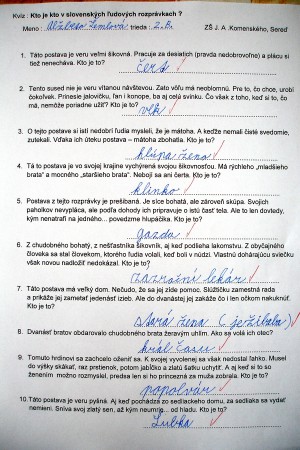 Kvíz : Kto je kto v slovenských ľudových rozprávkach ?
Meno : Alžbeta Zemlová trieda : 2.B. ZŠ J. A .Komenského, Sereď
1. Táto postava je veru veľmi šikovná. Pracuje za desiatich (pravda nedobrovoľne) a plácu si
tiež nenecháva. Kto je to?
čert
2. Tento sused nie je veru vítanou návštevou. Zato vôľu má neoblomnú. Pre to, čo chce, urobí
čokoľvek. Prinesie jalovičku, ľan i konope, ba aj celú svinku. Čo však z toho, keď si to, čo
má, nemôže poriadne užiť? Kto je to?
vlk
3. O tejto postave si istí nedobrí ľudia mysleli, že je mátoha. A keďže nemali čisté svedomie,
zutekali. Vďaka ich úteku postava – mátoha zbohatla. Kto je to?
hlúpa žena
4. Tá to postava je vo svojej krajine vychýrená svojou šikovnosťou. Má rýchleho „mladšieho
brata" a mocného „staršieho brata". Nebojí sa ani čerta. Kto je to?
klinko
5. Postava z tejto rozprávky je prešibaná. Je síce bohatá, ale zároveň skúpa. Svojich
paholkov nevypláca, ale podľa dohody ich pripravuje o istú časť tela. Ale to len dovtedy,
kým nenatrafí na jedného... povedzme hlupáčika. Kto je to?
gazda
6. Z chudobného bohatý, z nešťastníka šikovník, aj keď podlieha lakomstvu. Z obyčajného
človeka sa stal človekom, ktorého ľudia volali, keď boli v núdzi. Vlastnú dohárajúcu sviečku
však novou nadložiť nedokázal. Kto je to?
zázračný lekár
7. Táto postava má veľký dom. Nečudo, že sa jej zíde pomoc. Slúžtičku zamestná rada
a prikáže jej zametať jedenásť izieb. Ale do dvanástej jej zakáže čo i len očkom nakuknúť.
Kto je to?
stará žena ( ježibaba )
8. Dvanásť bratov obdarovalo chudobného brata žeravým uhlím. Ako sa volá ich otec?
kráľ času
9. Tomuto hrdinovi sa zachcelo oženiť sa. K svojej vyvolenej sa však nedostal ľahko. Musel
do výšky skákať, raz prstienok, potom jabĺčko a zlatú šatku uchytiť. A aj keď si to so
ženením možno rozmyslel, predsa len si ho princezná za muža zobrala. Kto je to?
popolvár
10. Táto postava je veru pyšná. Aj keď pochádza zo sedliackeho domu, za sedliaka sa vydať
nemieni. Sníva svoj zlatý sen, až kým neumrie... od hladu. Kto je to?
Ľubka